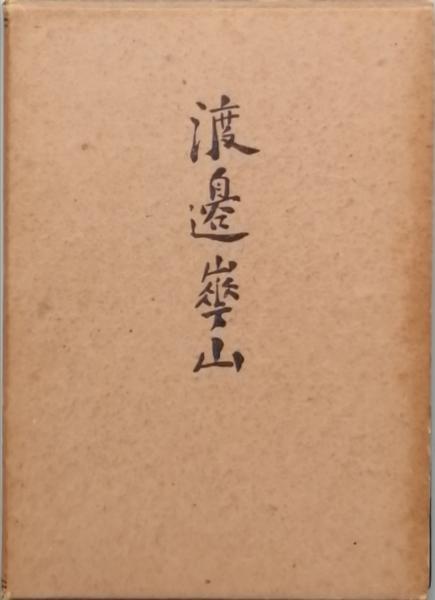 渡邊崋山